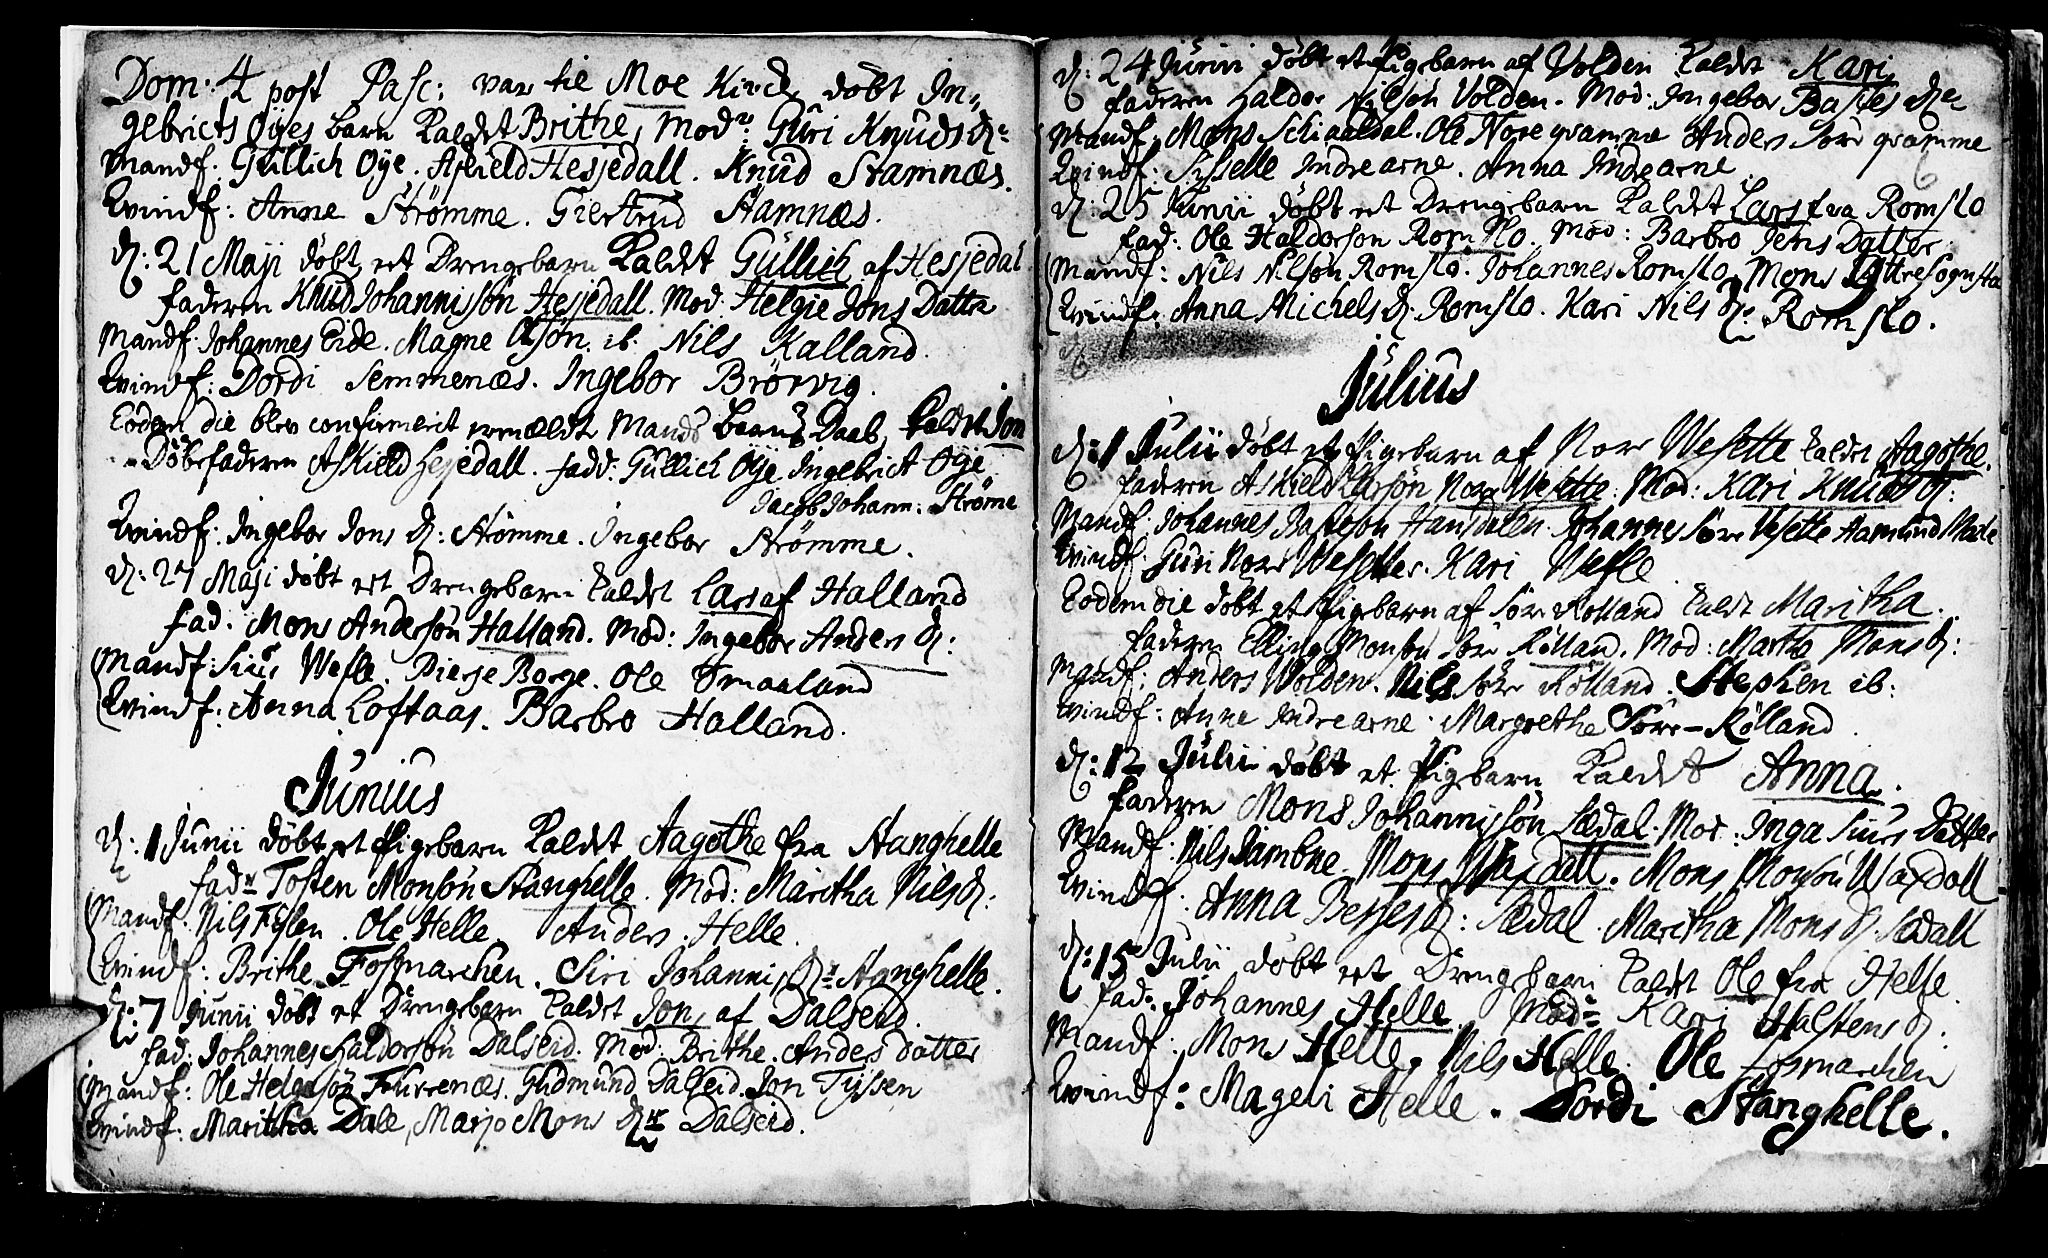 Dom. 4 post Pasc: var til Moe Kirche döbt In-
gebricts Øyes barn kaldet Brithe, Modr: Guri Knuds dr
Mandf: Gullich Øye. Askield Hesjedall. Knud Stamnæs.
Kvindf: Anne Strömme. Giertrud Stamnæs.
d: 21 Maji döbt eet Drengebarn kaldet Gullich af Hesjedal
faderen Knud Johannisön Hesjedall. Mod: Helgie Jons Datter
Mandf: Johannes Eide. Magne Olsön. ib. Nils Kalland.
Kvindf: Dordi Semmenæs. Ingebor Brörvig.
Eodem die blev confirmerit Mands Barns Daab, kaldet Jon
Döbefaderen Askield Hesjedall. fadd: Gullich Øye Ingebrict Øye
Jacob Johann: Ströme
Kvindf: Ingebor Jons d: Strömme. Ingebor Strömme.
d: 27 Maji döbt eet Drengebarn kaldet Lars af Halland
fad: Mons Andersön Halland. Mod: Ingebor Anders d:
Mandf: Siur Wesle. Dierje Borge. Ole Smaaland
Kvindf: Anna Loftaas. Barbro Halland.
Junius
d: 1 Junii döbt et Pigebarn kaldet Aagothe fra Stanghelle
fadr Tosten Monsön Stanghelle. Mod: Maritha Nils d:
Mandf: Nils Tislen. Ole Helle Anders Helle.
Kvindf: Brithe Fosmarchen. Siri Johannis dr Stanghelle.
d: 7 Junii döbt et Drengebarn kaldet Jon, af Dalseid.
fad: Johannes Haldorsön Dalseid. Mod: Brithe Anders datter
Mandf: Ole Helgesön Furrenæs. Gudmund Dalseid. Jon Tyssen
Kvindf: Maritha Dale, Marjo Mons dr Dalseid.
d: 24 Junii döbt et Pigebarn af Volden kaldet Kari,
faderen Haldor Nilsön Volden. Mod: Ingebor Basses dr
Mandf: Mons Schiaaldal. Ole Nore gramme Anders Söre gramme
Kvindf: Sisselle Indrearne. Anna Indrearne.
d: 25 Junii döbt eet Drengebarn kaldet Lars fra Romslo
fad: Ole Haldorson Romslo. Mod: Barbro Jens Datter
Mandf: Nils Nilsön Romslo. Johannes Romslo. Mons
Kvindf: Anna Michels d. Romslo. Kari Nils dr Romslo.
Julius
d: 1 Julii döbt et Pigebarn af Nore Wesette kaldet Aagothe.
faderen Askield Larsön Nore Wesette. Mod: Kari Knuds d:
Mandf: Johannes Hansdalen. Johannes Söre Vesette Aamund
Kvindf: Guri Nore Wesette. Kari Wesle
Eodem die döbt et Pigebarn af Söre Rölland kaldt Maritha.
faderen Elling Monsön Söre Rölland. Mod: Martho Mons d:
Mandf: Anders Wolden. Nils Söre Rölland. Stephen ib:
Kvindf: Anne Indrearne. Margrethe Söre-Rölland.
d: 12 Julii döbt et Pigebarn kaldet Anna.
faderen Mons Johannissön Sædal. Mod: Inga Siurs Datter
Mandf: Nils Jambne. Mons Waxdall. Mons Monsön Waxdall
Kvindf: Anna Besses d: Sædal. Maritha Mons d. Sædall
d: 15 Julii döbt eet Drengebarn kaldet Ole fra Helle.
fad: Johannes Helle. Modr Kari Halstens d.
Mandf: Mons Helle. Nils Helle. Ole Fosmarchen
Kvindf: Mageli Helle. Dordi Stanghelle.